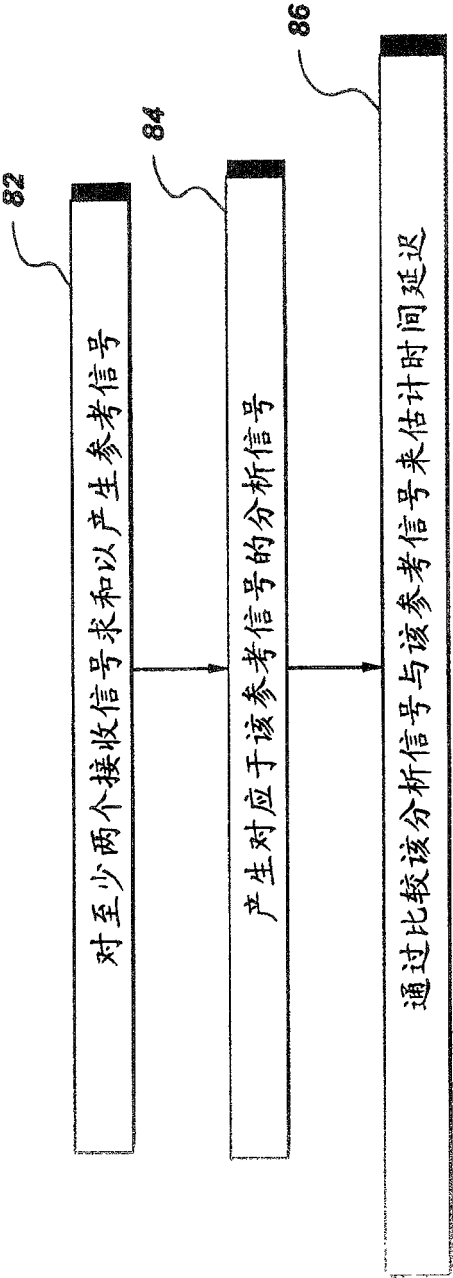 82
对至少两个接收信号求和以产生参考信号
84
产生对应于该参考信号的分析信号
86
通过比较该分析信号与该参考信号来估计时间延迟